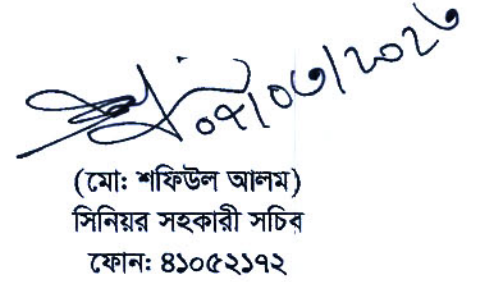 ০৭/০৩/২০২৬
(মো: শফিউল আলম)
সিনিয়র সহকারী সচিব
ফোন: ৪১০৫২১৭২